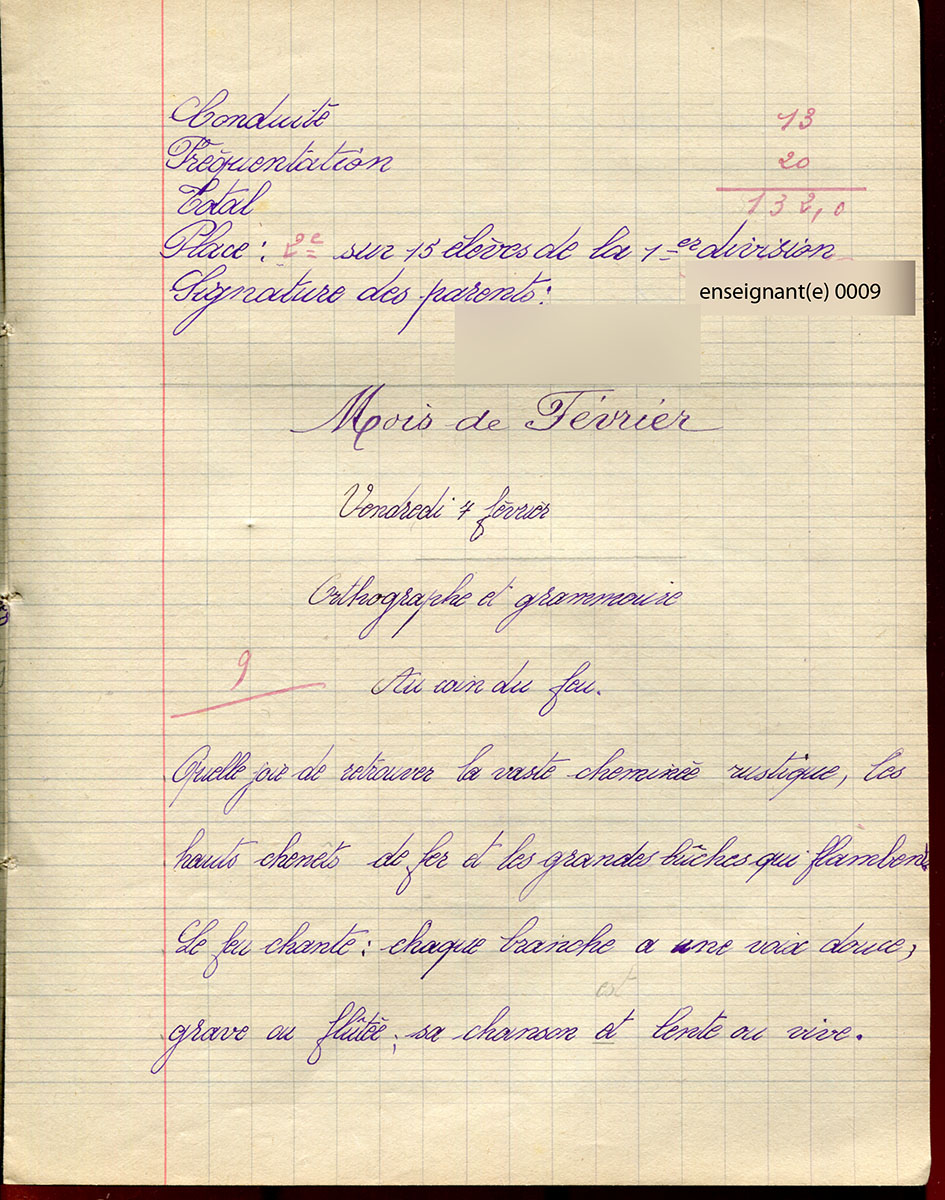 Conduite 13
Fréquentation 20
Total 132,0
Place : 2e sur 15 élèves de la 1er division
Signature des parents :
enseignant(e) 0009
Mois de Février
Vendredi 7 février
Orthographe et grammaire
9
Au coin du feu.
Quelle joie de retrouver la vaste cheminée rustique, les
hauts chenêts de fer et les grandes bûches qui flambent.
Le feu chante : chaque branche a une voix douce,
est
grave ou flûtée ; sa chanson et lente ou vive.